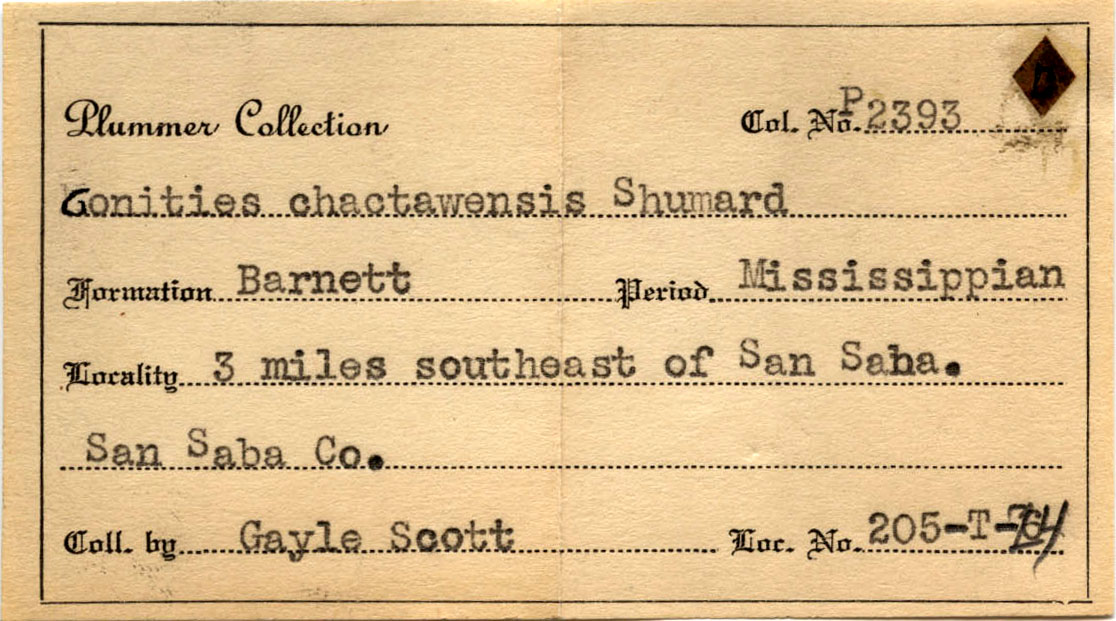 Plummer Collection Col. No. P2393
Gonities chactawensis Shumard
Formation Barnett Period Mississippian
Locality 3 miles southeast of San Saba.
San Saba Co.
Coll. by Gayle Scott Loc. No. 205-T-